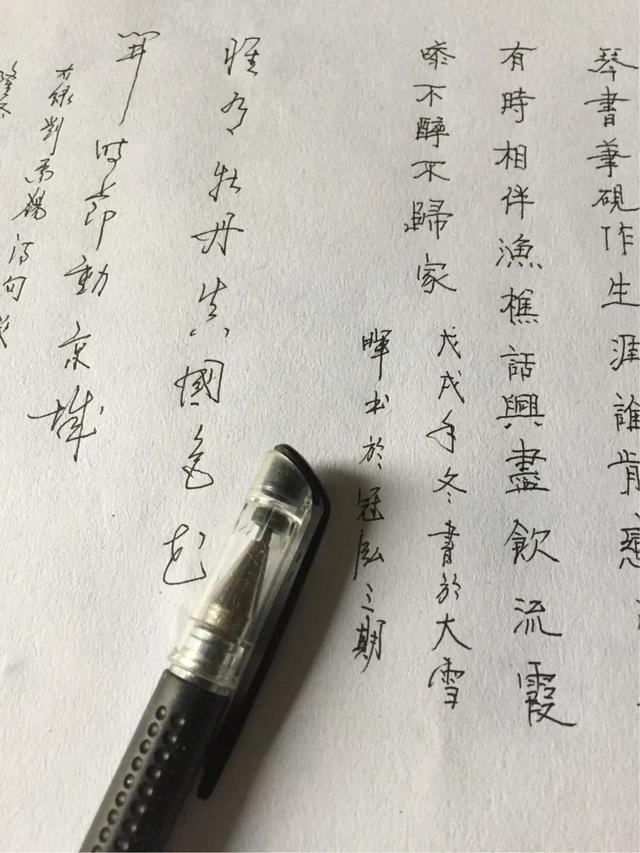 琴書筆硯作生涯誰肯戀
有時相伴漁樵話興盡飲流霞
嗏不醉不歸家
戊戌年冬書於大雪
暉书於冠弘三期
唯有牡丹真國色花
開时节動京城
录劉禹锡诗句